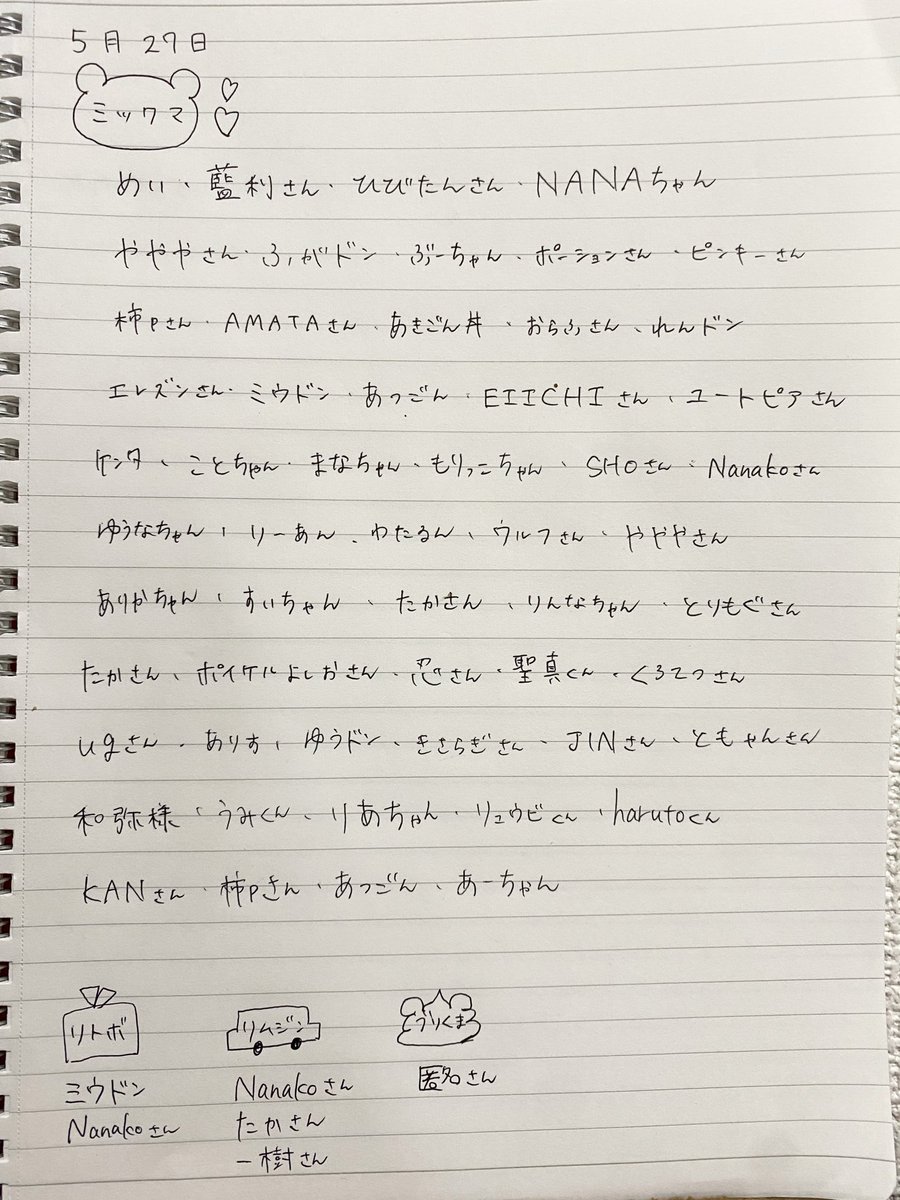 5月27日
ミックマ
めい、藍利さん、ひびたんさん、NANAちゃん
ややさん、ふがドン、ぶーちゃん、ポーションさん、ピンキーさん
柿pさん、AMATAさん、あきごん丼、おらふさん、れんドン
エレズンさん、ミウドン、あっごん、EIICHIさん、ユートピアさん
ケンタ、ことちゃん、まなちゃん、もりっこちゃん、SHOさん、Nanakoさん
ゆうなちゃん、りーあん、わたるん、ウルフさん、ややさん
ありかちゃん、すいちゃん、たかさん、りんなちゃん、とりもぐさん
たかさん、ポイケルよしおさん、忍さん、聖真くん、くろてつさん
ugさん、ありす、ゆうドン、きさらぎさん、JINさん、ともやんさん
和弥様、うみくん、りあちゃん、リュウビくん、harutoくん
KANさん、柿pさん、あっごん、あーちゃん
リトボ リムジン ぶりくま
ミウドン Nanakoさん 匿名さん
Nanakoさん たかさん
一樹さん